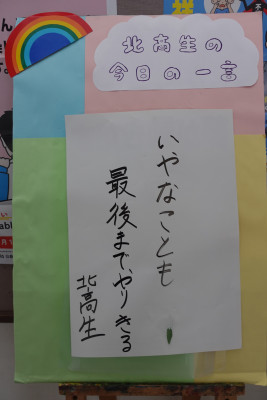 北高生の
今日の一言
いやなことも
最後まで、やりきる
北高生